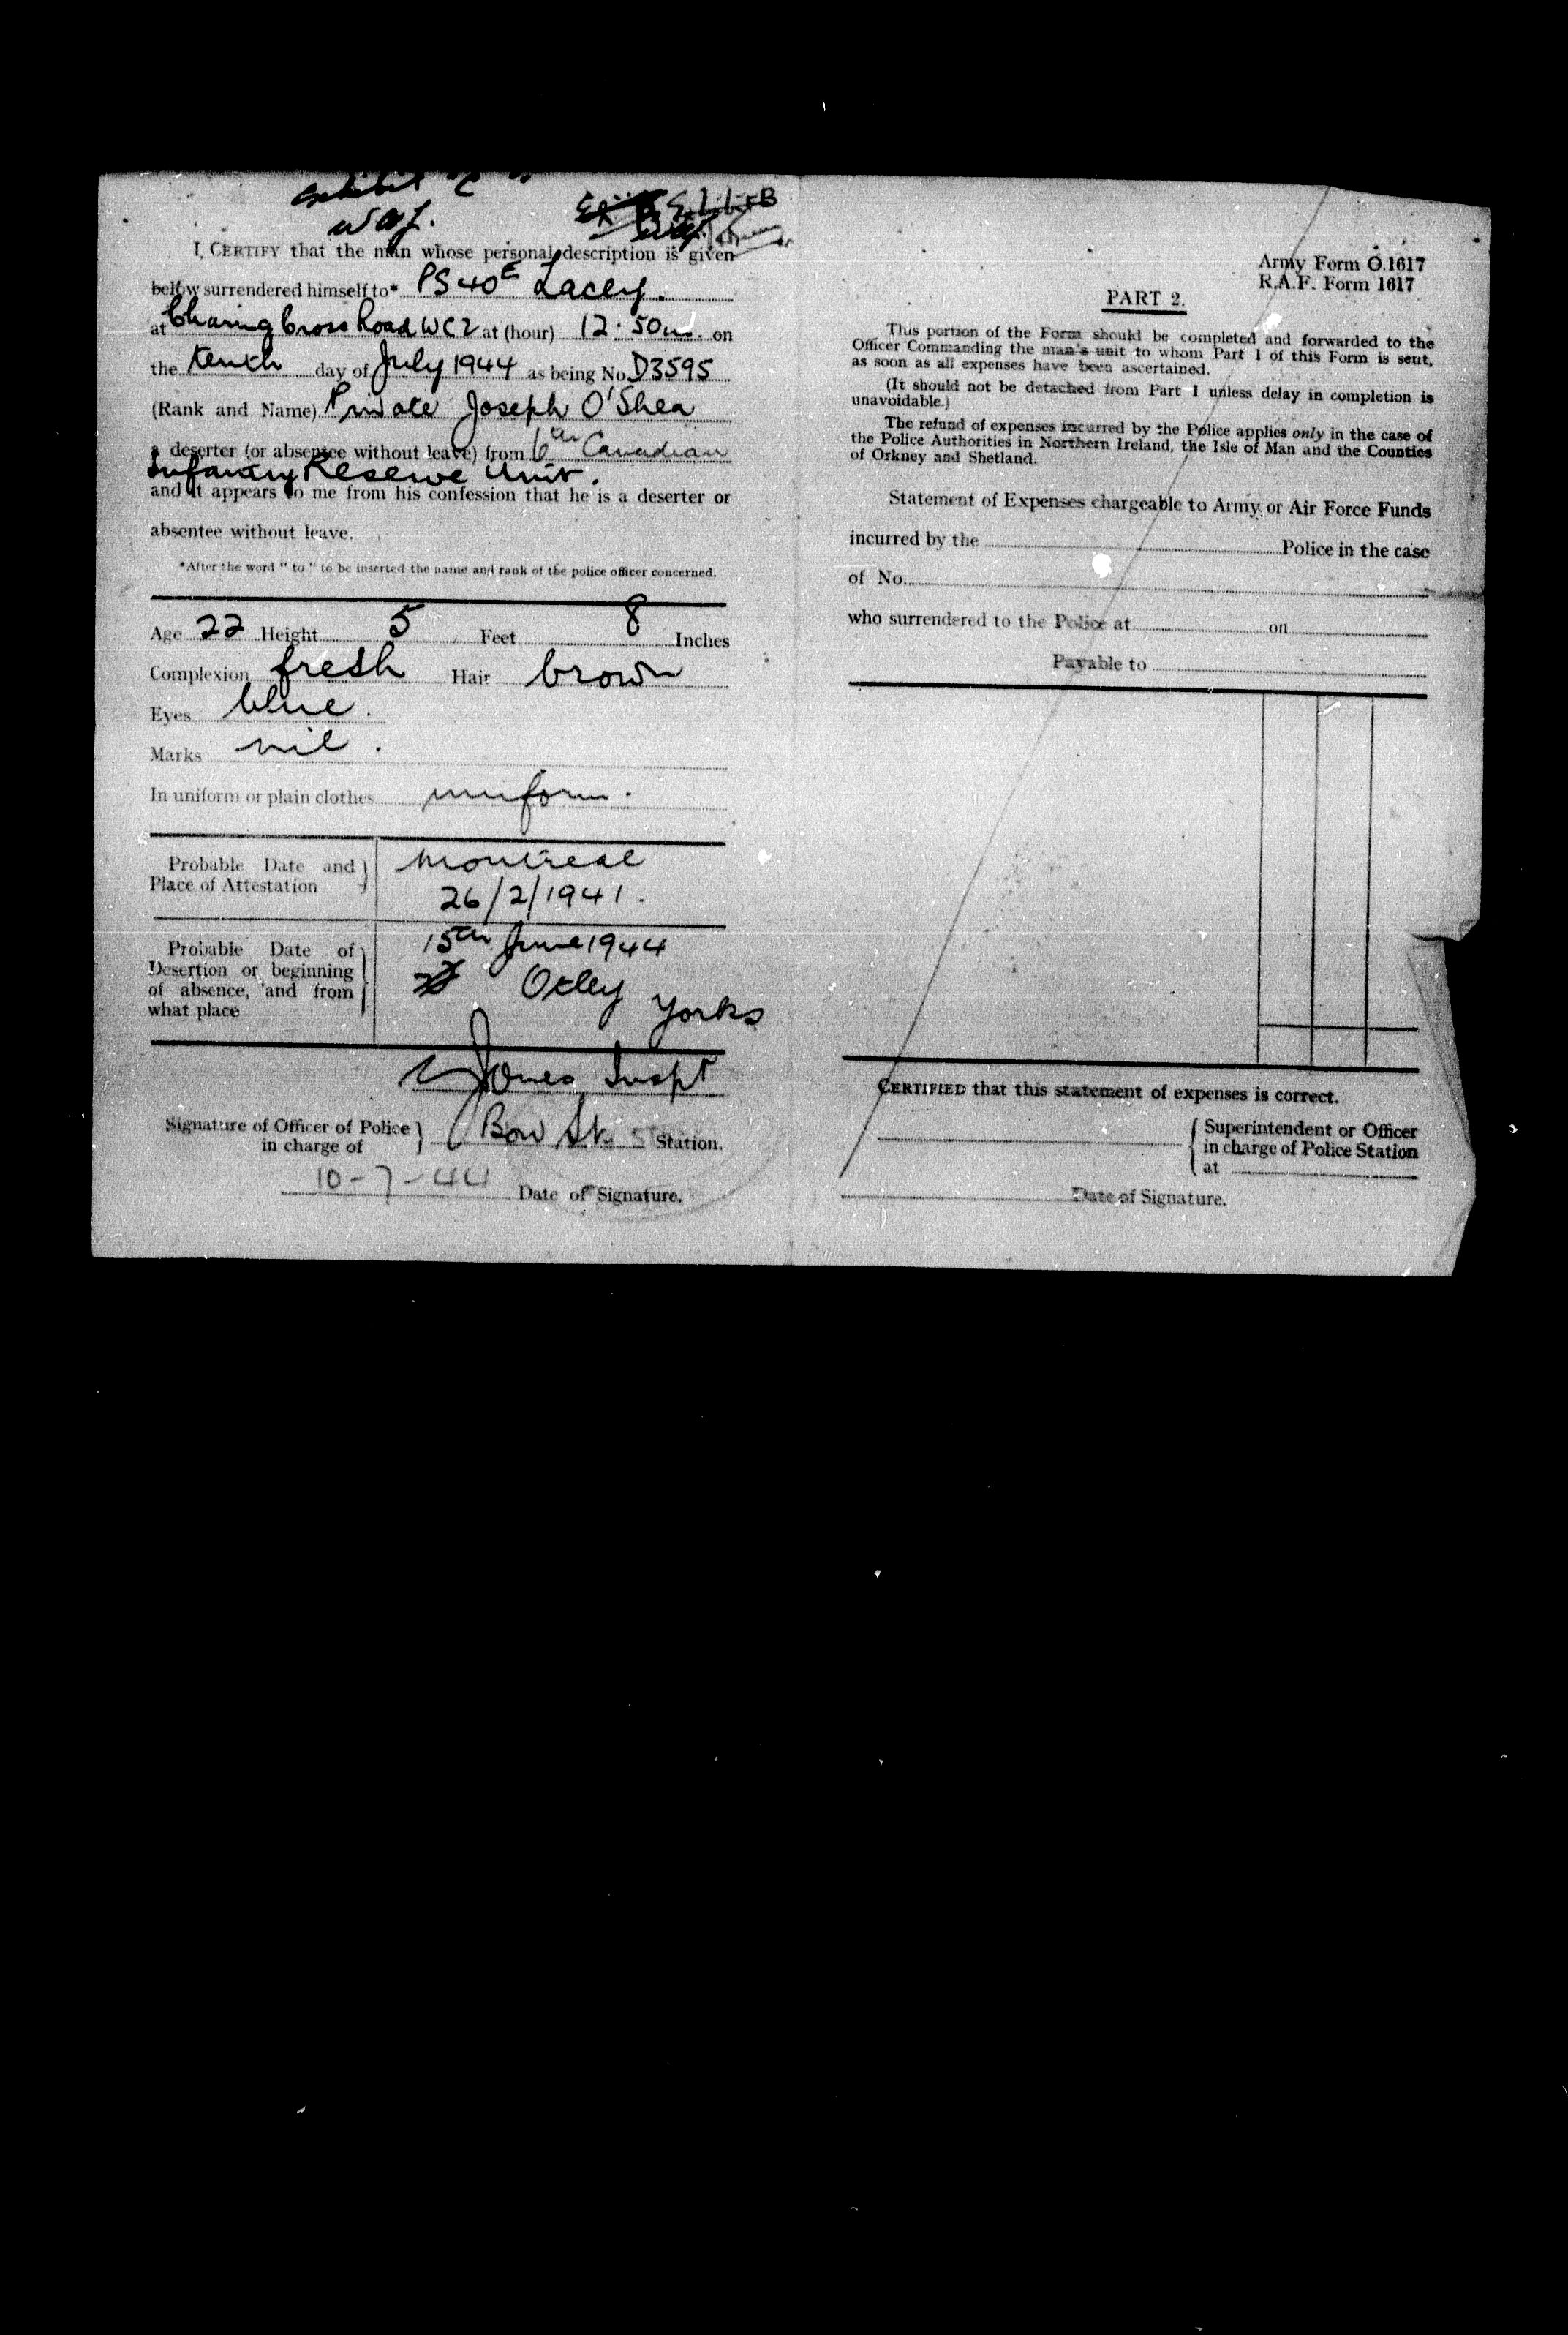 Exhibit
WAJ.
Exhibit B
I, CERTIFY that the man whose personal description is given
below surrendered himself to* PS 40E Lacey.
at Charing Cross Road WC2 at (hour) 12.50 on
the tenth day of July 1944 as being No D3595
(Rank and Name) Private Joseph O'Shea
a deserter (or absentee without leave) from 6th Canadian
Infantry Reserve Unit.
and it appears to me from his confession that he is a deserter or
absentee without leave.
*After the word " to " to be inserted the name and rank of the police officer concerned.
Age 22 Height 5 Feet 8 Inches
Complexion fresh Hair brown
Eyes blue.
Marks nil.
In uniform or plain clothes uniform.
Probable Date and Place of Attestation
Montreal
26/2/1941.
Probable Date of
Desertion or beginning
of absence, and from
what place
15th June 1944
Otley Yorks
Jones Inspt
Signature of Officer of Police
in charge of
Bow St. Station.
10-7-44 Date of Signature.
Army Form O.1617
R.A.F. Form 1617
PART 2.
This portion of the Form should be completed and forwarded to the
Officer Commanding the man's unit to whom Part 1 of this Form is sent,
as soon as all expenses have been ascertained.
(It should not be detached from Part 1 unless delay in completion is
unavoidable.)
The refund of expenses incurred by the Police applies only in the case of
the Police Authorities in Northern Ireland, the Isle of Man and the Counties
of Orkney and Shetland.
Statement of Expenses chargeable to Army or Air Force Funds
incurred by the Police in the case
of No.
who surrendered to the Police at on
Payable to
CERTIFIED that this statement of expenses is correct.
Superintendent or Officer
in charge of Police Station
at
Date of Signature.